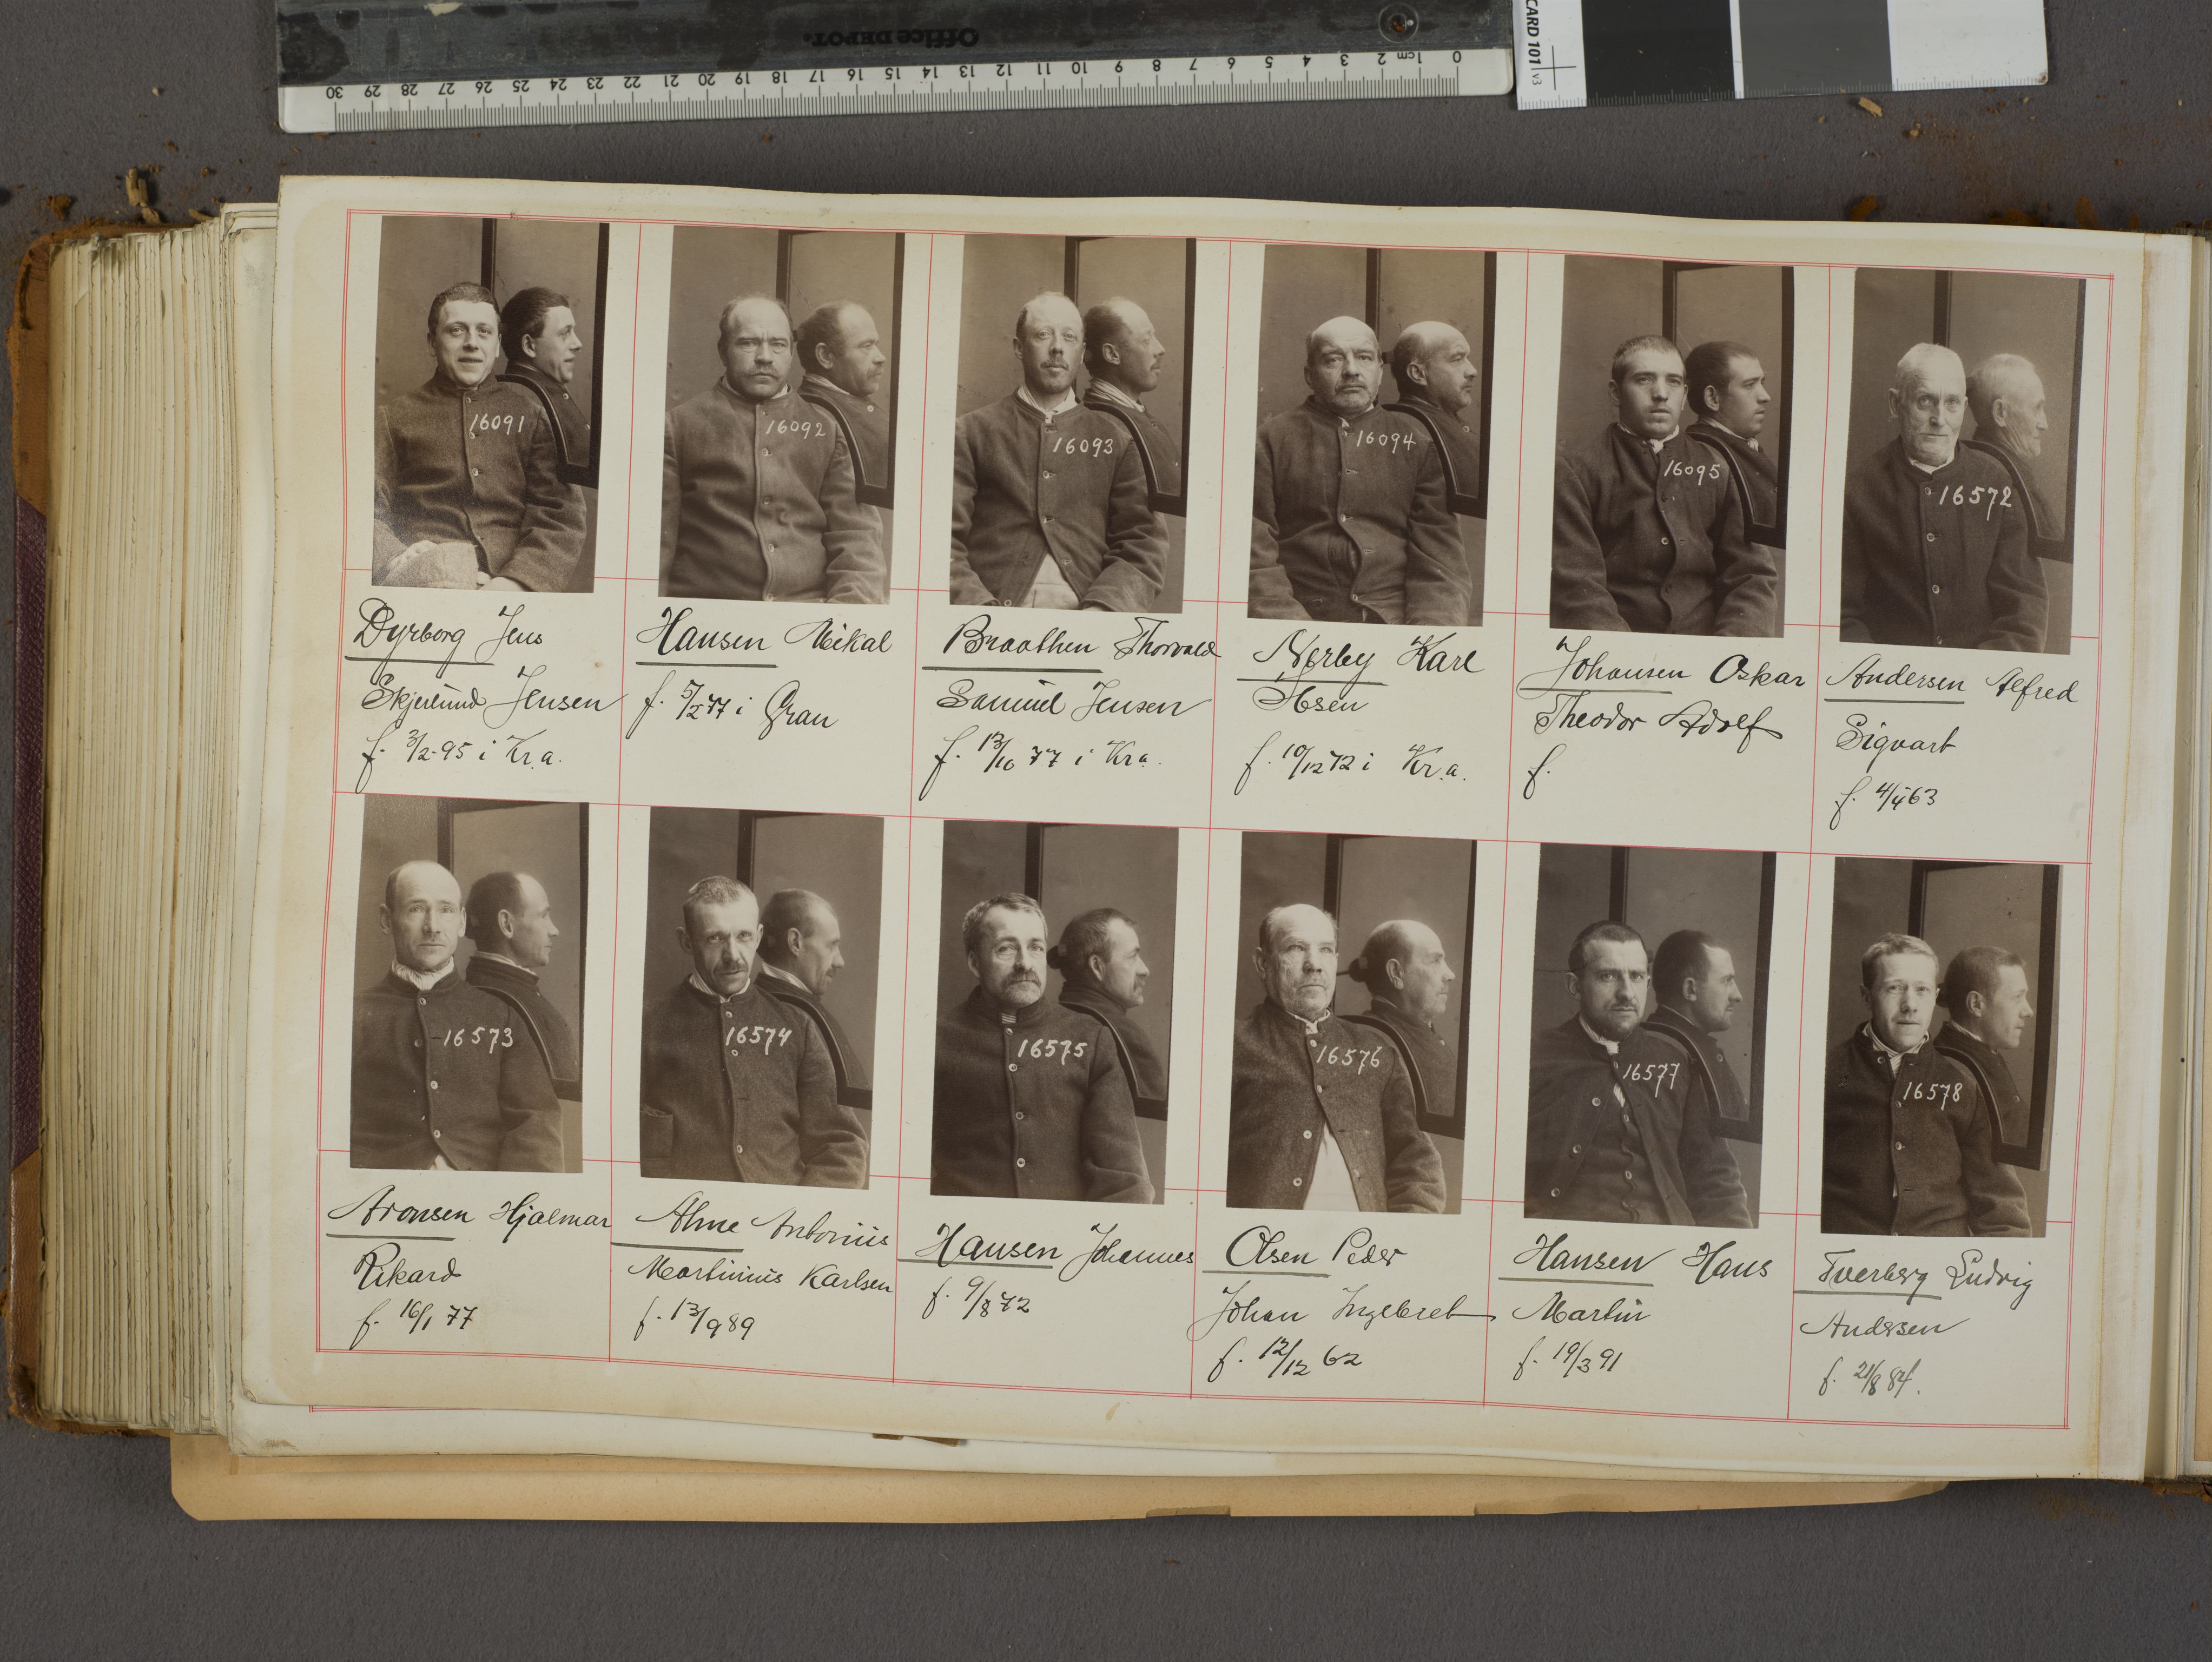 Office DEPOT.
0 1cm 2 3 4 5 6 7 8 9 10 11 12 13 14 15 16 17 18 19 20 21 22 23 24 25 26 27 28 29 30
CARD 101 v3
16091
16092
16093
16094
16095
16572
Dyrborg Jens
Skjerlund Jensen
f. 3/2-95 i Kr.a.
Hansen Mikal
f. 5/2 77 i Gran
Braathen Thorvald
Samuel Jensen
f. 13/10 77 i Kr.a.
Nerby Karl
Olsen
f. 10/12 72 i Kr.a.
Johansen Oskar
Theodor Adolf
f.
Andersen Alfred
Sigvart
f. 4/4 63
16573
16574
16575
16576
16577
16578
Aronsen Hjalmar
Rikard
f. 16/1 77
Alme Antonius
Martinius Karlsen
f. 13/9 89
Hansen Johannes
f. 9/8 72
Olsen Peder
Johan Ingebret
f. 12/12 62
Hansen Hans
Martin
f. 19/3 91
Tverberg Ludvig
Andersen
f. 21/8 84.